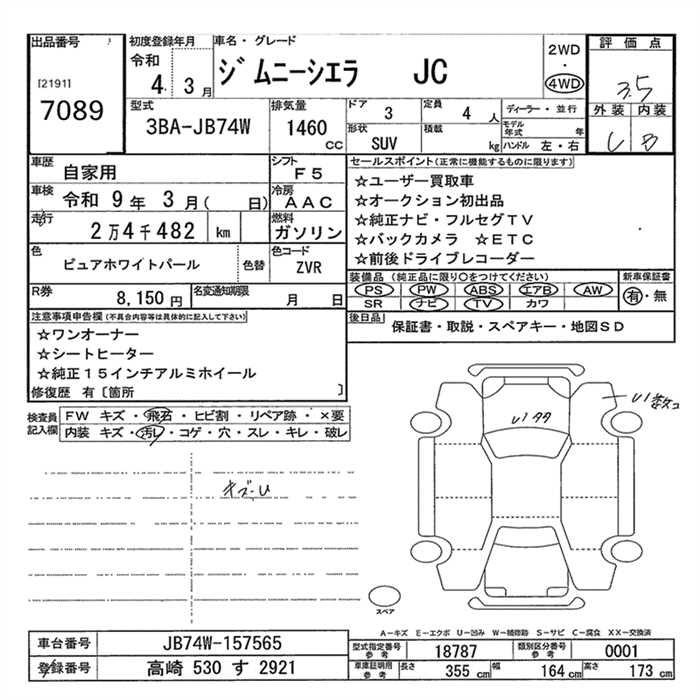 出品番号
[2191]
7089
初度登録年月
令和
4年 3月
車名・グレード
ジムニーシエラ JC
2WD
・
4WD
評価点
3.5
外装 内装
B
型式
3BA-JB74W
排気量
1460
CC
ドア
3
定員
4 人
形状
SUV
積載
kg
ディーラー・並行
モデル
年式 年
ハンドル 左・右
車歴
自家用
シフト
F5
車検
令和 9年 3月( 日)
冷房
AAC
走行
2万4千482 km
燃料
ガソリン
色
ピュアホワイトパール
色替
色コード
ZVR
R券
8,150円
名変通知期限
月 日
セールスポイント(正常に機能するものに限ります)
☆ユーザー買取車
☆オークション初出品
☆純正ナビ・フルセグTV
☆バックカメラ ☆ETC
☆前後ドライブレコーダー
装備品 (純正品に限り○をつけてください)
PS PW ABS エアB AW
SR ナビ TV カワ
新車保証書
有・無
後日品
保証書・取説・スペアキー・地図SD
注意事項申告欄(不具合内容等は具体的に記入して下さい)
☆ワンオーナー
☆シートヒーター
☆純正15インチアルミホイール
修復歴 有〔箇所 〕
検査員
記入欄
FW キズ・飛石・ヒビ割・リペア跡・×要
内装 キズ・汚レ・コゲ・穴・スレ・キレ・破レ
キズ・U
スペア
A−キズ E−エクボ U−凹み W−補修跡 S−サビ C−腐食 XX−交換済
車台番号
JB74W-157565
登録番号
高崎 530 す 2921
型式指定番号
参考
18787
類別区分番号
参考
0001
車庫証明用
参考
長さ
355 cm
幅
164 cm
高さ
173 cm